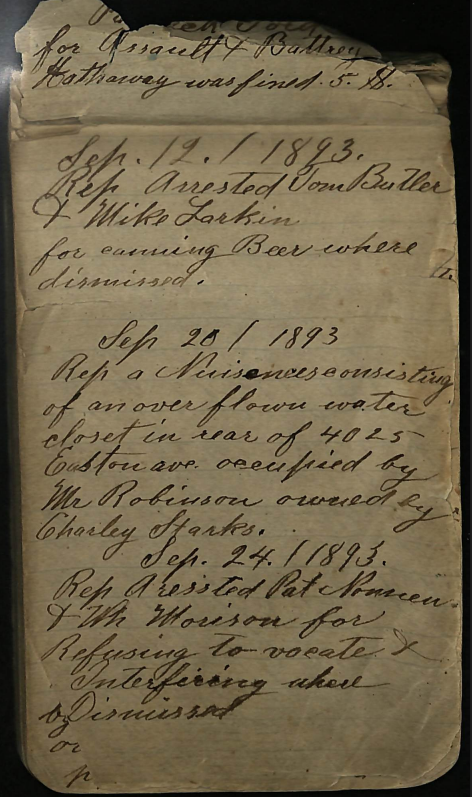 for Assault & Battrey
Hathaway was fined. 5. $.
Sep. 12. / 1893.
Rep Arrested Tom Butler
& Mike Larkin
for canning Beer where
dismissed.
Sep 20 / 1893
Rep a Nuisences consisting
of an over flown water
closet in rear of 4025
Easton ave. occupied by
Mr Robinson owned by
Charley Starks.
Sep. 24. / 1893.
Rep Aressted Pat
& Wh Morison for
Refusing to vocate &
Interfiering where
Dismissed
or
p